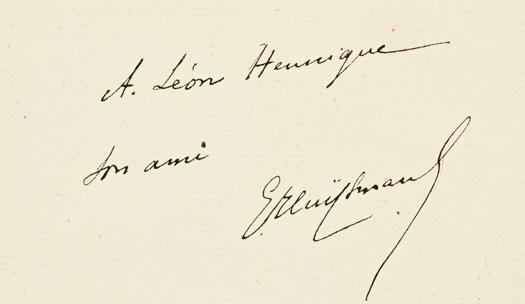 A. Léon Hennique
son ami
G. Huÿsmans